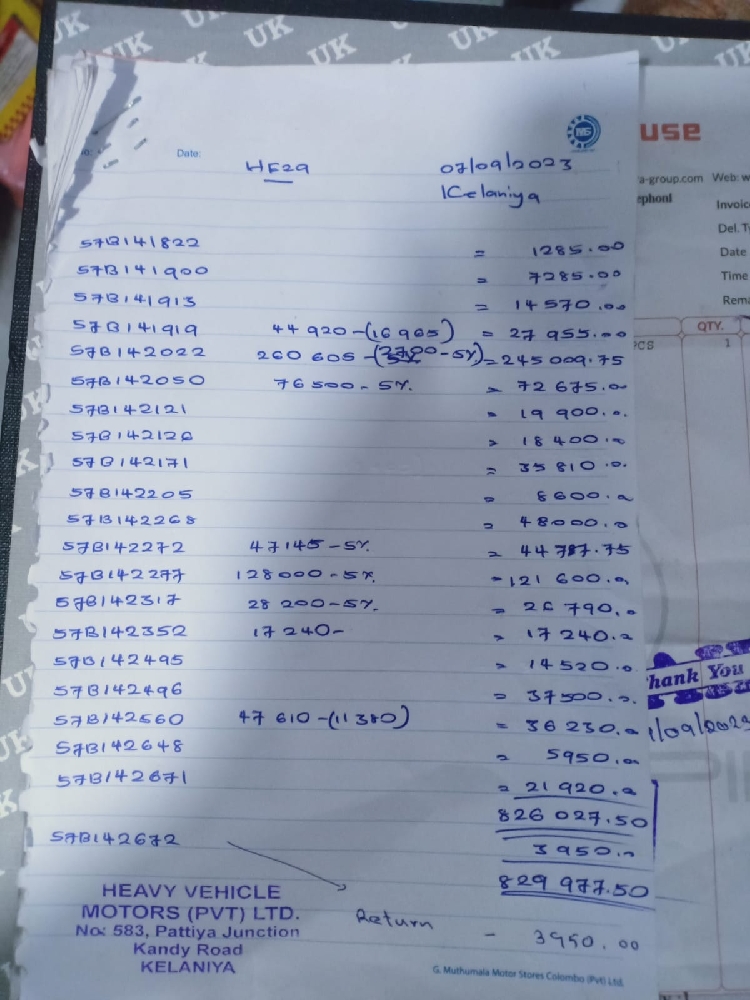 UK UK UK UK UK UK
No: Date:
HE29 07/09/2023
Kelaniya
57B141822 = 1285.00
57B141900 = 7285.00
57B141913 = 14570.00
57B141919 44920-(16965) = 27955.00
57B142022 260605-(2700-5%) = 245009.75
57B142050 76500-5% = 72675.00
57B142121 = 19900.00
57B142126 = 18400.00
57B142171 = 35810.00
57B142205 = 8600.00
57B142268 = 48000.00
57B142272 47145-5% = 44787.75
57B142277 128000-5% = 121600.00
57B142317 28200-5% = 26790.00
57B142352 17240- = 17240.00
57B142495 = 14520.00
57B142496 = 37500.00
57B142560 47610-(11380) = 36230.00
57B142648 = 5950.00
57B142671 = 21920.00
826027.50
57B142672 3950.00
829977.50
Return - 3950.00
HEAVY VEHICLE
MOTORS (PVT) LTD.
No: 583, Pattiya Junction
Kandy Road
KELANIYA
G. Muthumala Motor Stores Colombo (Pvt) Ltd.
use
a-group.com Web: w
ephoni
Invoic
Del. T
Date
Time
Rema
QTY.
PCS 1
Thank You
/09/2023